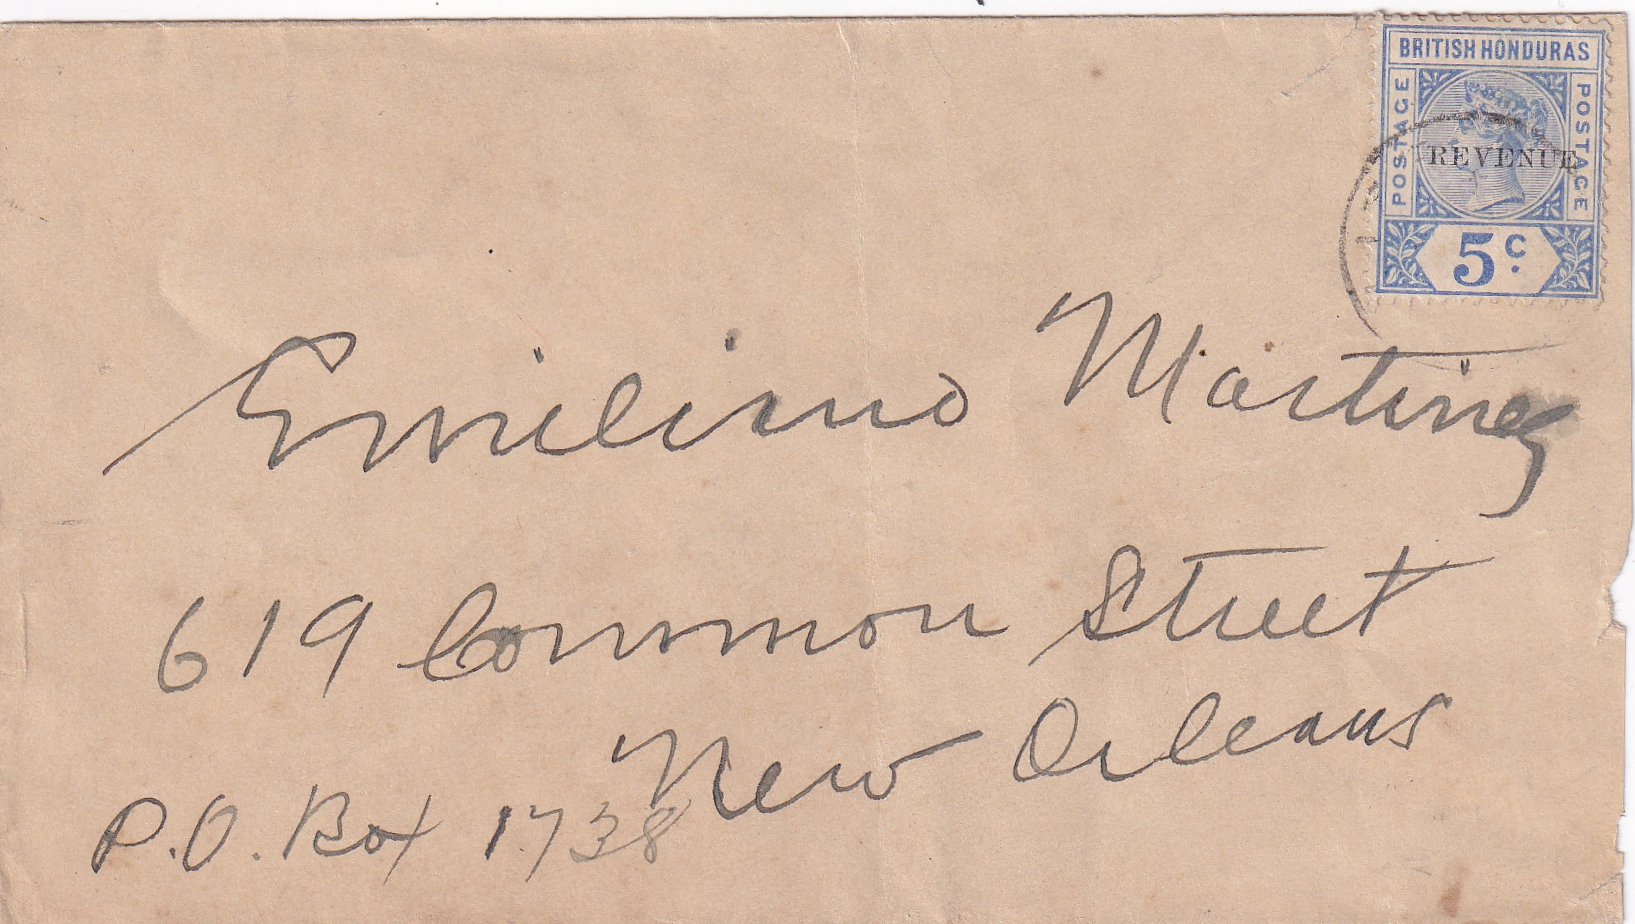 BRITISH HONDURAS
POSTAGE
POSTAGE
REVENUE
5c.
Emiliano Martinez
619 Common Street
New Orleans
P.O. Box 1738